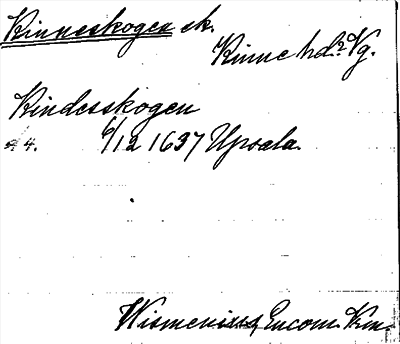 Kinneskogen sk.
Kinne hd? Vg.
Kindesskogen
s 4. 6/12 1637 Upsala.
Wismenius, Encom. Kin.